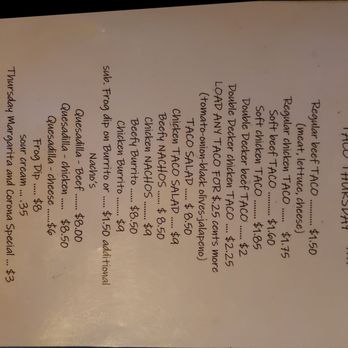 TACO THURSDAY
Regular beef TACO .......... $1.50
(meat, lettuce, cheese)
Regular chicken TACO ...... $1.75
Soft beef TACO ..... $1.60
Soft chicken TACO ....... $1.85
Double Decker beef TACO .... $2
Double Decker chicken TACO .... $2.25
LOAD ANY TACO FOR $.25 cents more
(tomato-onion-black olives-jalapeno)
TACO SALAD ..... $ 8.50
Chicken TACO SALAD ..... $9
Beefy NACHOS ...... $ 8.50
Chicken NACHOS ....... $9
Beefy Burrito ..... $8.50
Chicken Burrito ....... $9
sub. Frog dip on Burrito or .... $1.50 additional
Nacho's
Quesadilla - Beef ....... $8.00
Quesadilla - chicken ..... $8.50
Quesadilla - cheese ......$6
Frog Dip ..... $8
sour cream .. .35
Thursday Margarita and Corona Special ... $3